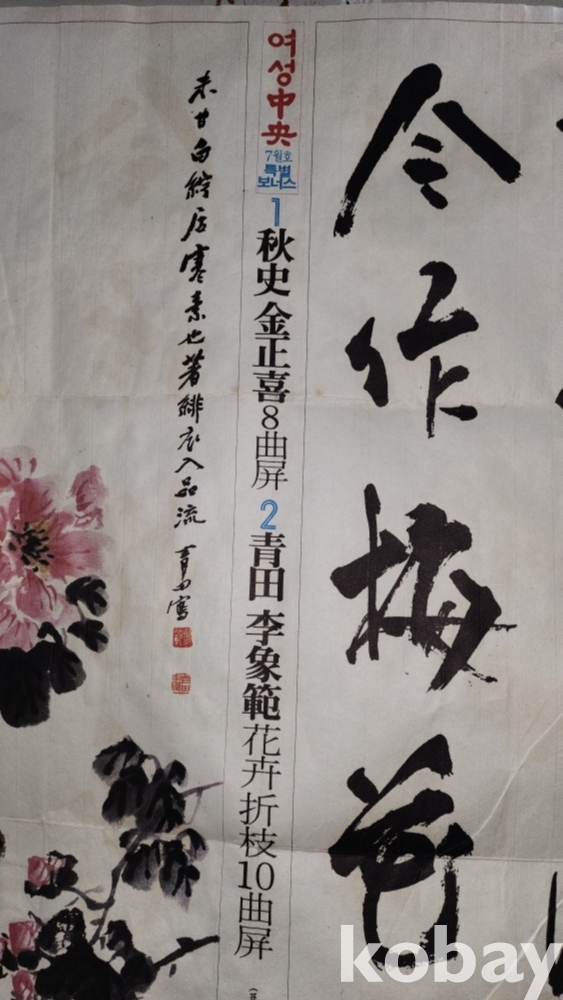 令作梅花
여성中央
7월호
특별
보너스
1 秋史 金正喜 8曲屏 2 青田 李象範 花卉折枝 10曲屏
未甘白紵居寒素也著緋衣入品流 青田寫
kobay